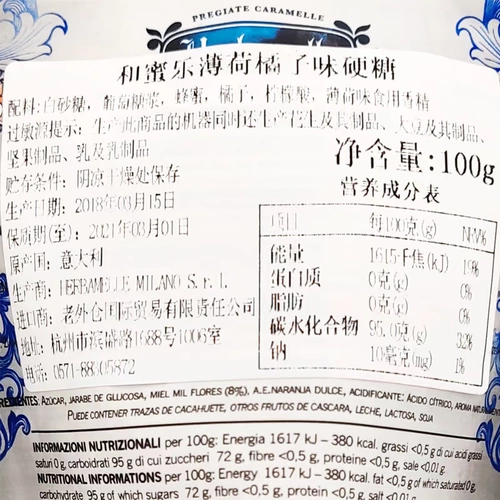 PREGIATE CARAMELLE
和蜜乐薄荷橘子味硬糖
配料:白砂糖，葡萄糖浆，蜂蜜，橘子，柠檬酸，薄荷味食用香精
过敏源提示：生产此商品的机器同时还生产花生及其制品、大豆及其制品、
坚果制品、乳及乳制品
净含量:100g
贮存条件：阴凉干燥处保存
生产日期：2018年03月15日
保质期(至)：2021年03月01日
原产国：意大利
生产商：HERBAMELLE MILANO S.r.l.
进口商：老外仓国际贸易有限责任公司
地址：杭州市滨盛路1688号1006室
电话：0571-88305872
营养成分表
项目 每100克(g) NRV%
能量 1615千焦(kJ) 19%
蛋白质 0克(g) 0%
脂肪 0克(g) 0%
碳水化合物 95.0克(g) 32%
钠 10毫克(mg) 1%
INGREDIENTES: AZÚCAR, JARABE DE GLUCOSA, MIEL MIL FLORES (8%), A.E.NARANJA DULCE, ACIDIFICANTE: ÁCIDO CÍTRICO, AROMA
PUEDE CONTENER TRAZAS DE CACAHUETE, OTROS FRUTOS DE CASCARA, LECHE, LACTOSA, SOJA
INFORMAZIONI NUTRIZIONALI per 100g: Energia 1617 kJ – 380 kcal. grassi <0,5 g di cui acidi grassi
saturi 0 g, carboidrati 95 g di cui zuccheri 72 g, fibre <0,5 g, proteine <0,5 g, sale <0,01 g.
NUTRITIONAL INFORMATIONS per 100g: Energy 1617 kJ – 380 kcal. fat <0,5 g of which saturated 0 g,
carbohydrate 95 g of which sugars 72 g, fibre <0,5 g, protein <0,5 g, salt <0,01